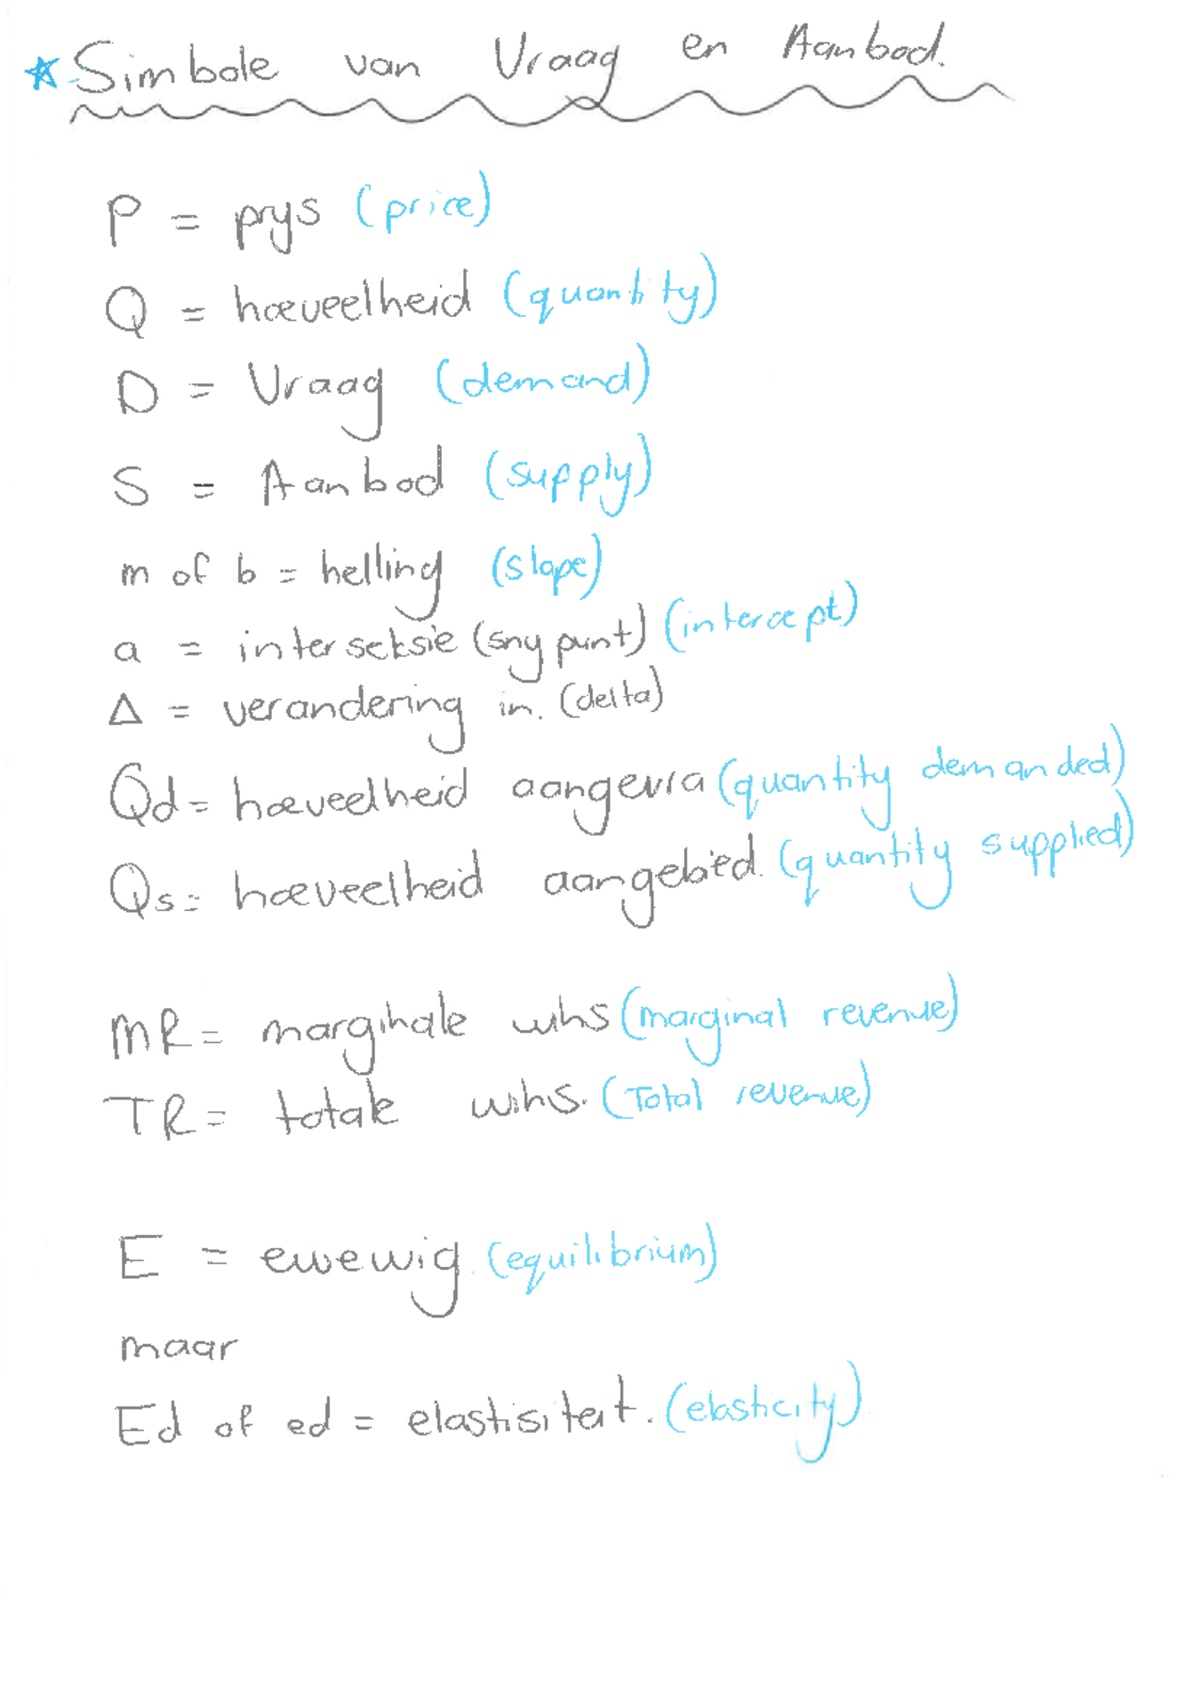 Simbole van Vraag en Aanbod.
P = prys (price)
Q = hoeveelheid (quantity)
D = Vraag (demand)
S = Aanbod (supply)
m of b = helling (slope)
a = interseksie (snypunt) (intercept)
Δ = verandering in. (delta)
Qd = hoeveelheid aangevra (quantity demanded)
Qs = hoeveelheid aangebied. (quantity supplied)
MR = marginale wins (marginal revenue)
TR = totale wins. (Total revenue)
E = ewewig. (equilibrium)
maar
Ed of ed = elastisiteit. (elasticity)